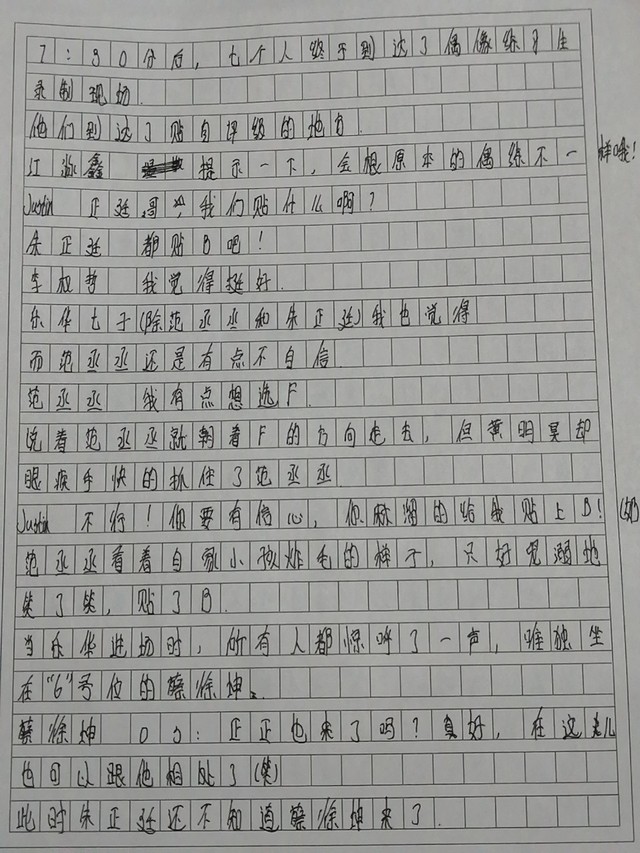 7:30分后，七个人终于到达了偶像练习生
录制现场.
他们到达了贴自评级的地方.
江泳鑫 提示一下，金根原本的偶练不一样哦！
Justin 正廷哥，我们贴什么啊？
朱正廷 都贴B吧！
李权哲 我觉得挺好.
乐华七子(除范丞丞和朱正廷)我也觉得
而范丞丞还是有点不自信.
范丞丞 我有点想选F.
说着范丞丞就朝着F的方向走去，但黄明昊却
眼疾手快的抓住了范丞丞.
Justin 不行！你要有信心，你麻溜的给我贴上B！(奶
范丞丞看着自家小孩炸毛的样子，只好宠溺地
笑了笑，贴了B.
当乐华进场时，所有人都惊呼了一声，唯独坐
在"6"号位的蔡徐坤。
蔡徐坤 OS：正正也来了吗？真好，在这儿
也可以跟他相处了(笑)
此时朱正廷还不知道蔡徐坤来了.